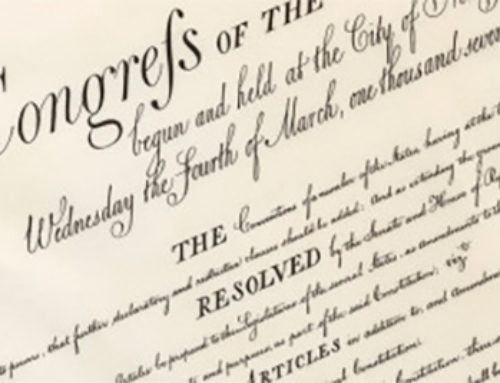 Congreſs OF THE
begun and held at the City of
Wednesday the Fourth of March, one thousand seven
THE Conventions of a number of the States, having at the
powers, that further declaratory and restrictive clauses should be added: And as extending the
RESOLVED by the Senate and House of
Articles be proposed to the Legislatures of the several States, as amendments to the
and purposes, as part of the said Constitution; viz.
ARTICLES in addition to, and
Constitution.